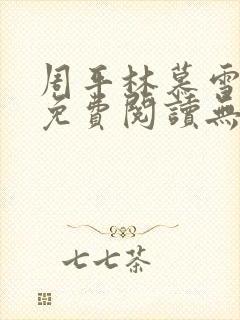 周平林慕雪
免費閱讀無
七七茶